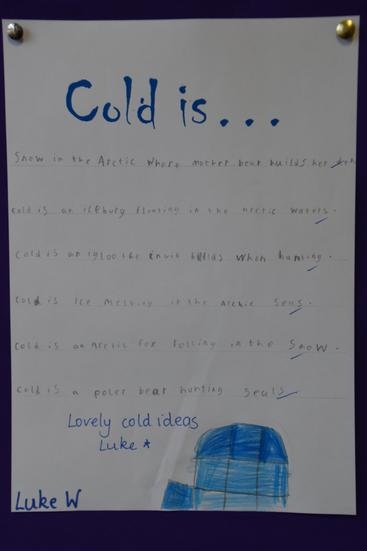 Cold is...
Snow in the Arctic where mother bear builds her den
Cold is an iceburg floating in the arctic waters.
Cold is an igloo the inuit builds when hunting.
Cold is Ice melting in the Arctic Seas.
Cold is an Arctic fox rolling in the Snow.
Cold is a poler bear hunting seals
Lovely cold ideas
Luke *
Luke W